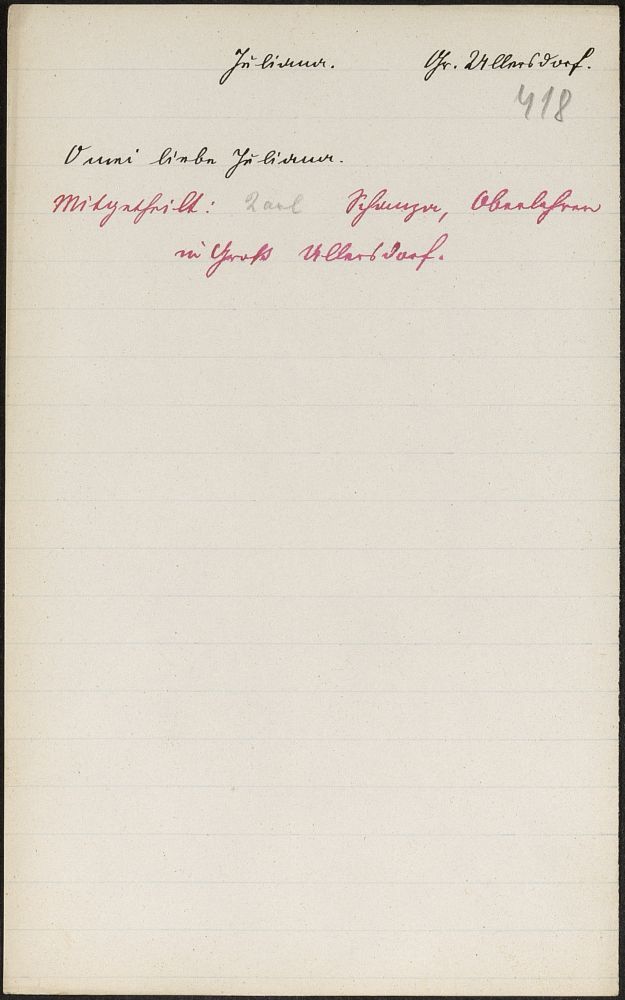 Juliana. Gr. Ullersdorf.
418
O mei liebe Juliana.
Mitgetheilt: Karl Schwarzer, Oberlehrer
in Groß Ullersdorf.